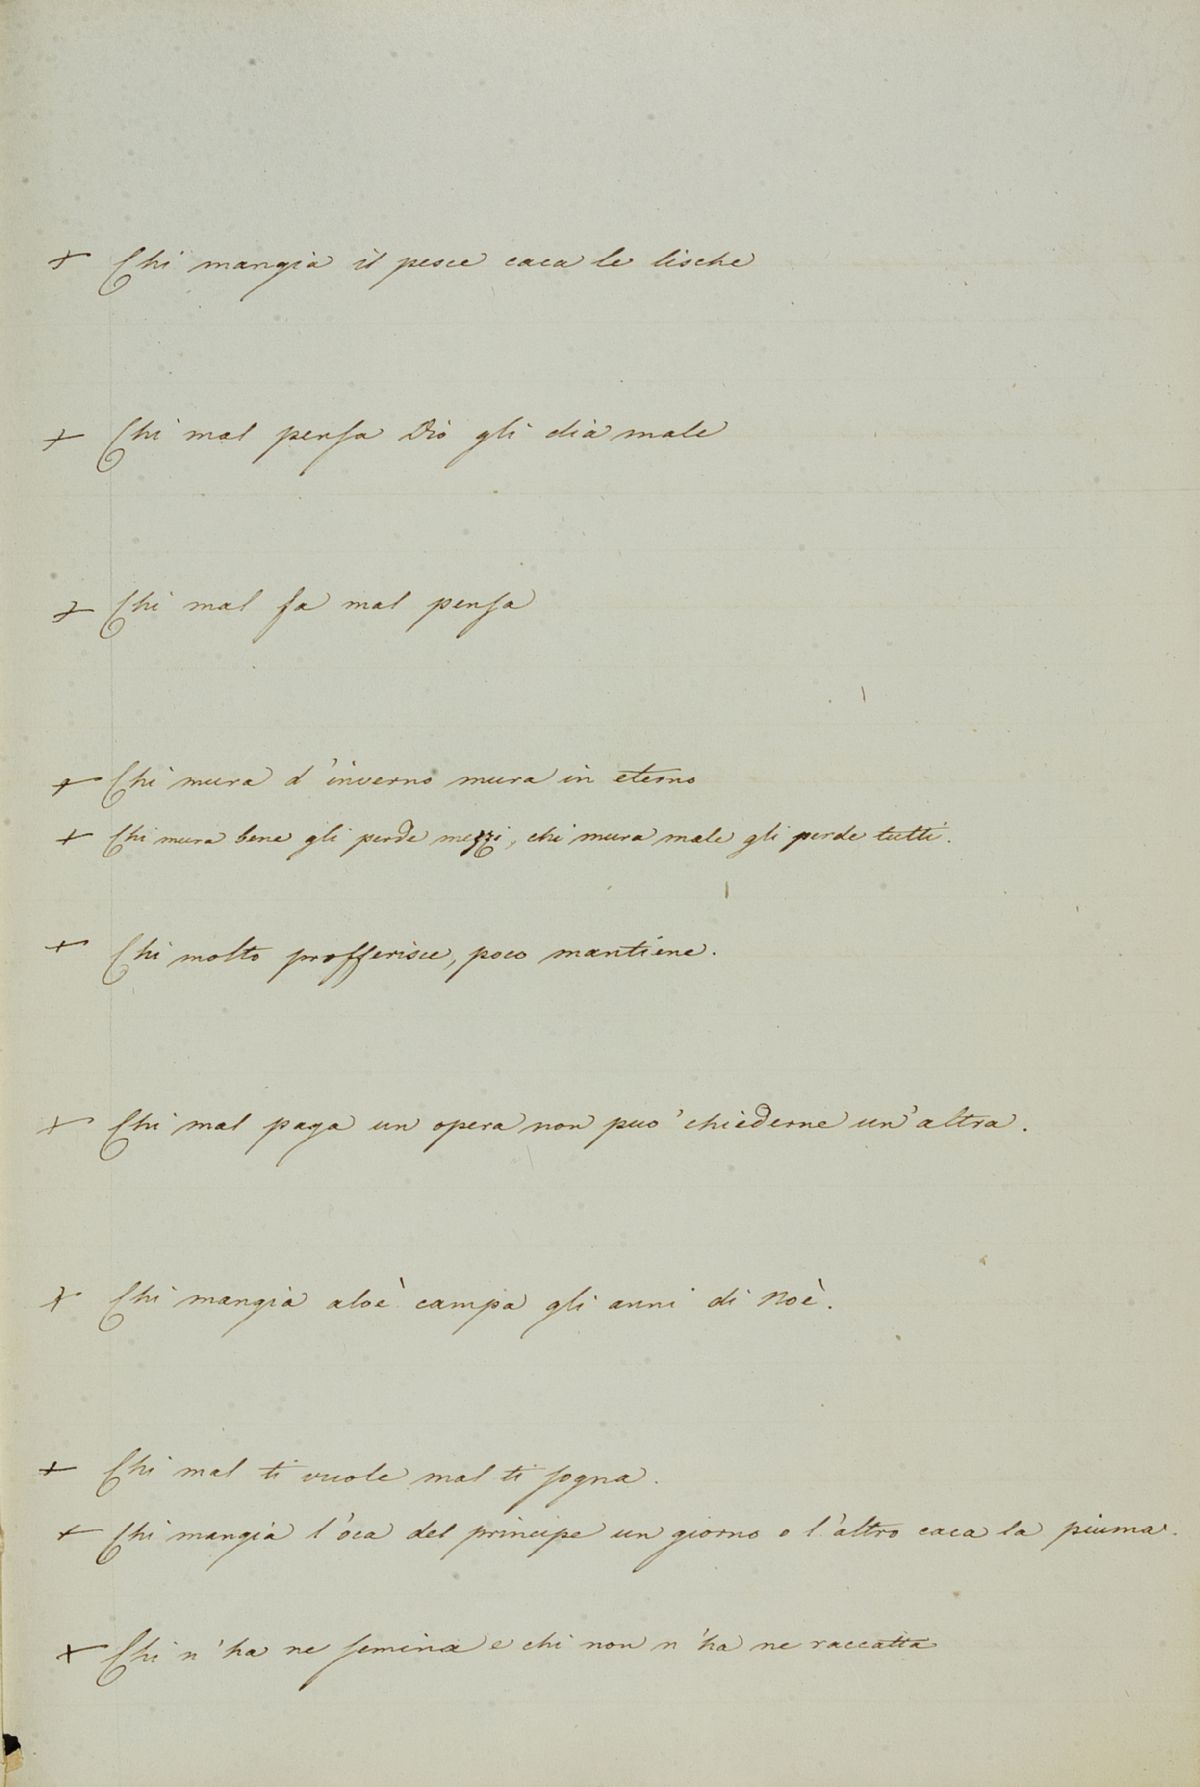 + Chi mangia il pesce caca le lische
+ Chi mal pensa Dio gli dia male
+ Chi mal fa mal pensa
+ Chi mura d'inverno mura in eterno
+ Chi mura bene gli perde mezzi, chi mura male gli perde tutti.
+ Chi molto profferisce, poco mantiene.
+ Chi mal paga un opera non puo' chiederne un'altra.
+ Chi mangia aloè campa gli anni di Noè.
+ Chi mal ti vuole mal ti sogna.
+ Chi mangia l'oca del principe un giorno o l'altro caca la piuma.
+ Chi n'ha ne semina e chi non n'ha ne raccatta